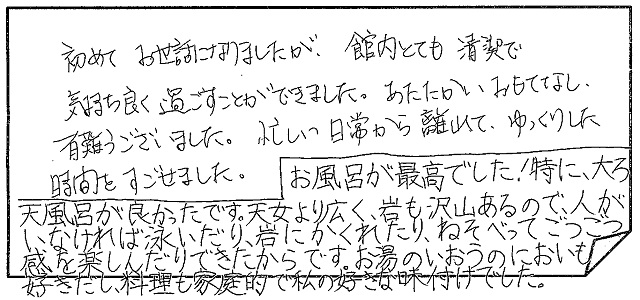 初めて お世話になりましたが、 館内とても 清潔で
気持ち良く 過ごすことができました。 あたたかい おもてなし、
有難うございました。 忙しい 日常から 離れて、ゆっくりした
時間を すごせました。
お風呂が最高でした！特に、大ろ
天風呂が良かったです。天女より広く、岩も沢山あるので、人が
いなければ泳いだり、岩にかくれたり、ねそべってごつごつ
感を楽しんだりできたからです。お湯のいおうのにおいも
好きだし、料理も家庭的で私の好きな味付けでした。